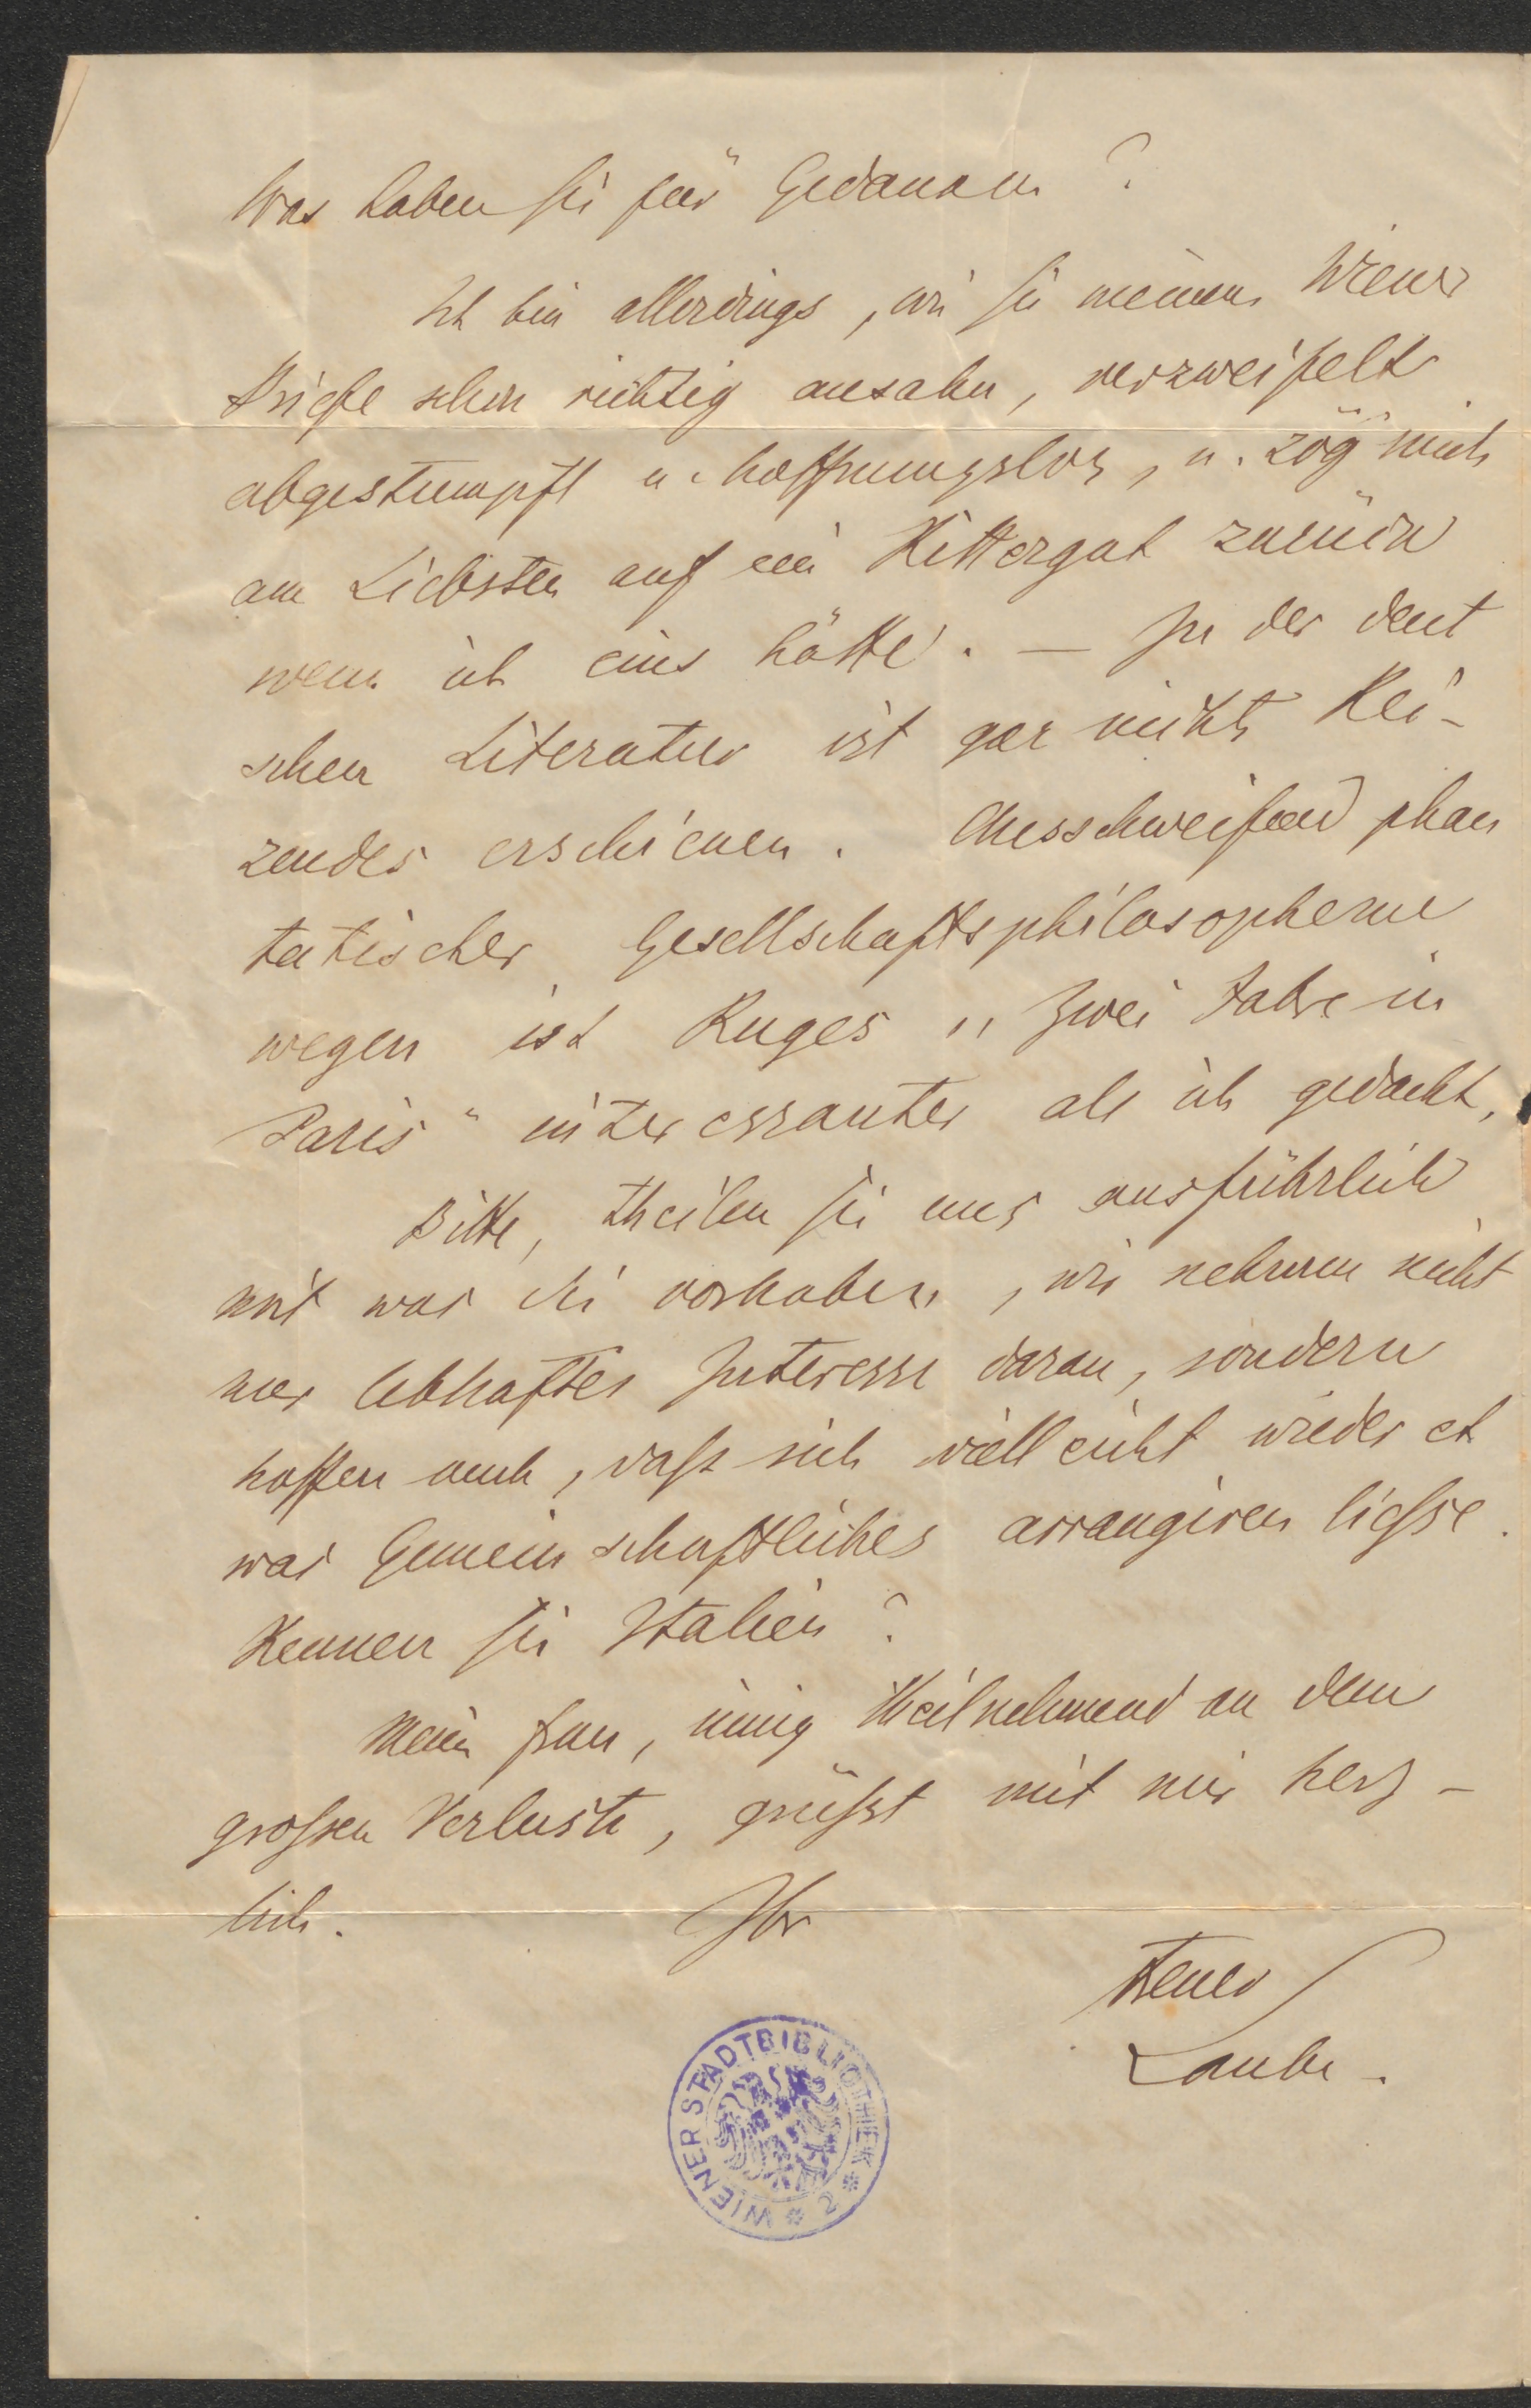 Was haben Sie für Gedanken?
Ich bin allerdings, wie Sie meinem Wiener
Briefe schon richtig ansahn, verzweifelt
abgestumpft u. hoffnungslos, u. zög mich
am Liebsten auf ein Rittergut zurück
wenn ich eins hätte. — In der deut
schen Literatur ist gar nichts Rei-
zendes erschienen. Ausschweifend phan
tatischer Gesellschaftsphilosopheme
wegen ist Ruges „Zwei Jahre in
Paris“ interessanter als ich gedacht.
Bitte, theilen Sie uns ausführlich
mit was Sie vorhaben, wir nehmen nicht
nur lebhaftes Interesse daran, sondern
hoffen auch, daß sich vielleicht wieder et
was Gemeinschaftliches arrangiren ließe.
Kennen Sie Italien?
Meine Frau, innig theilnehmend an dem
großen Verluste, grüßt mit mir herz-
lich. Ihr
treuer
Laube.
WIENER STADTBIBLIOTHEK * 2 *